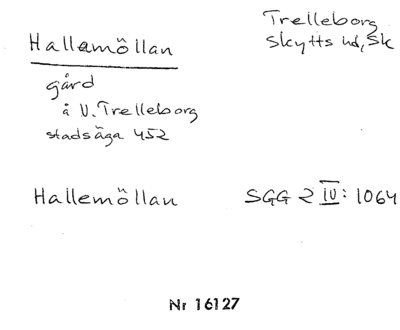 Hallemöllan
Trelleborg
Skytts hd, Sk
gård
å V. Trelleborg
stadsäga 452
Hallemöllan SGG 2 IV: 1064
Nr 16127